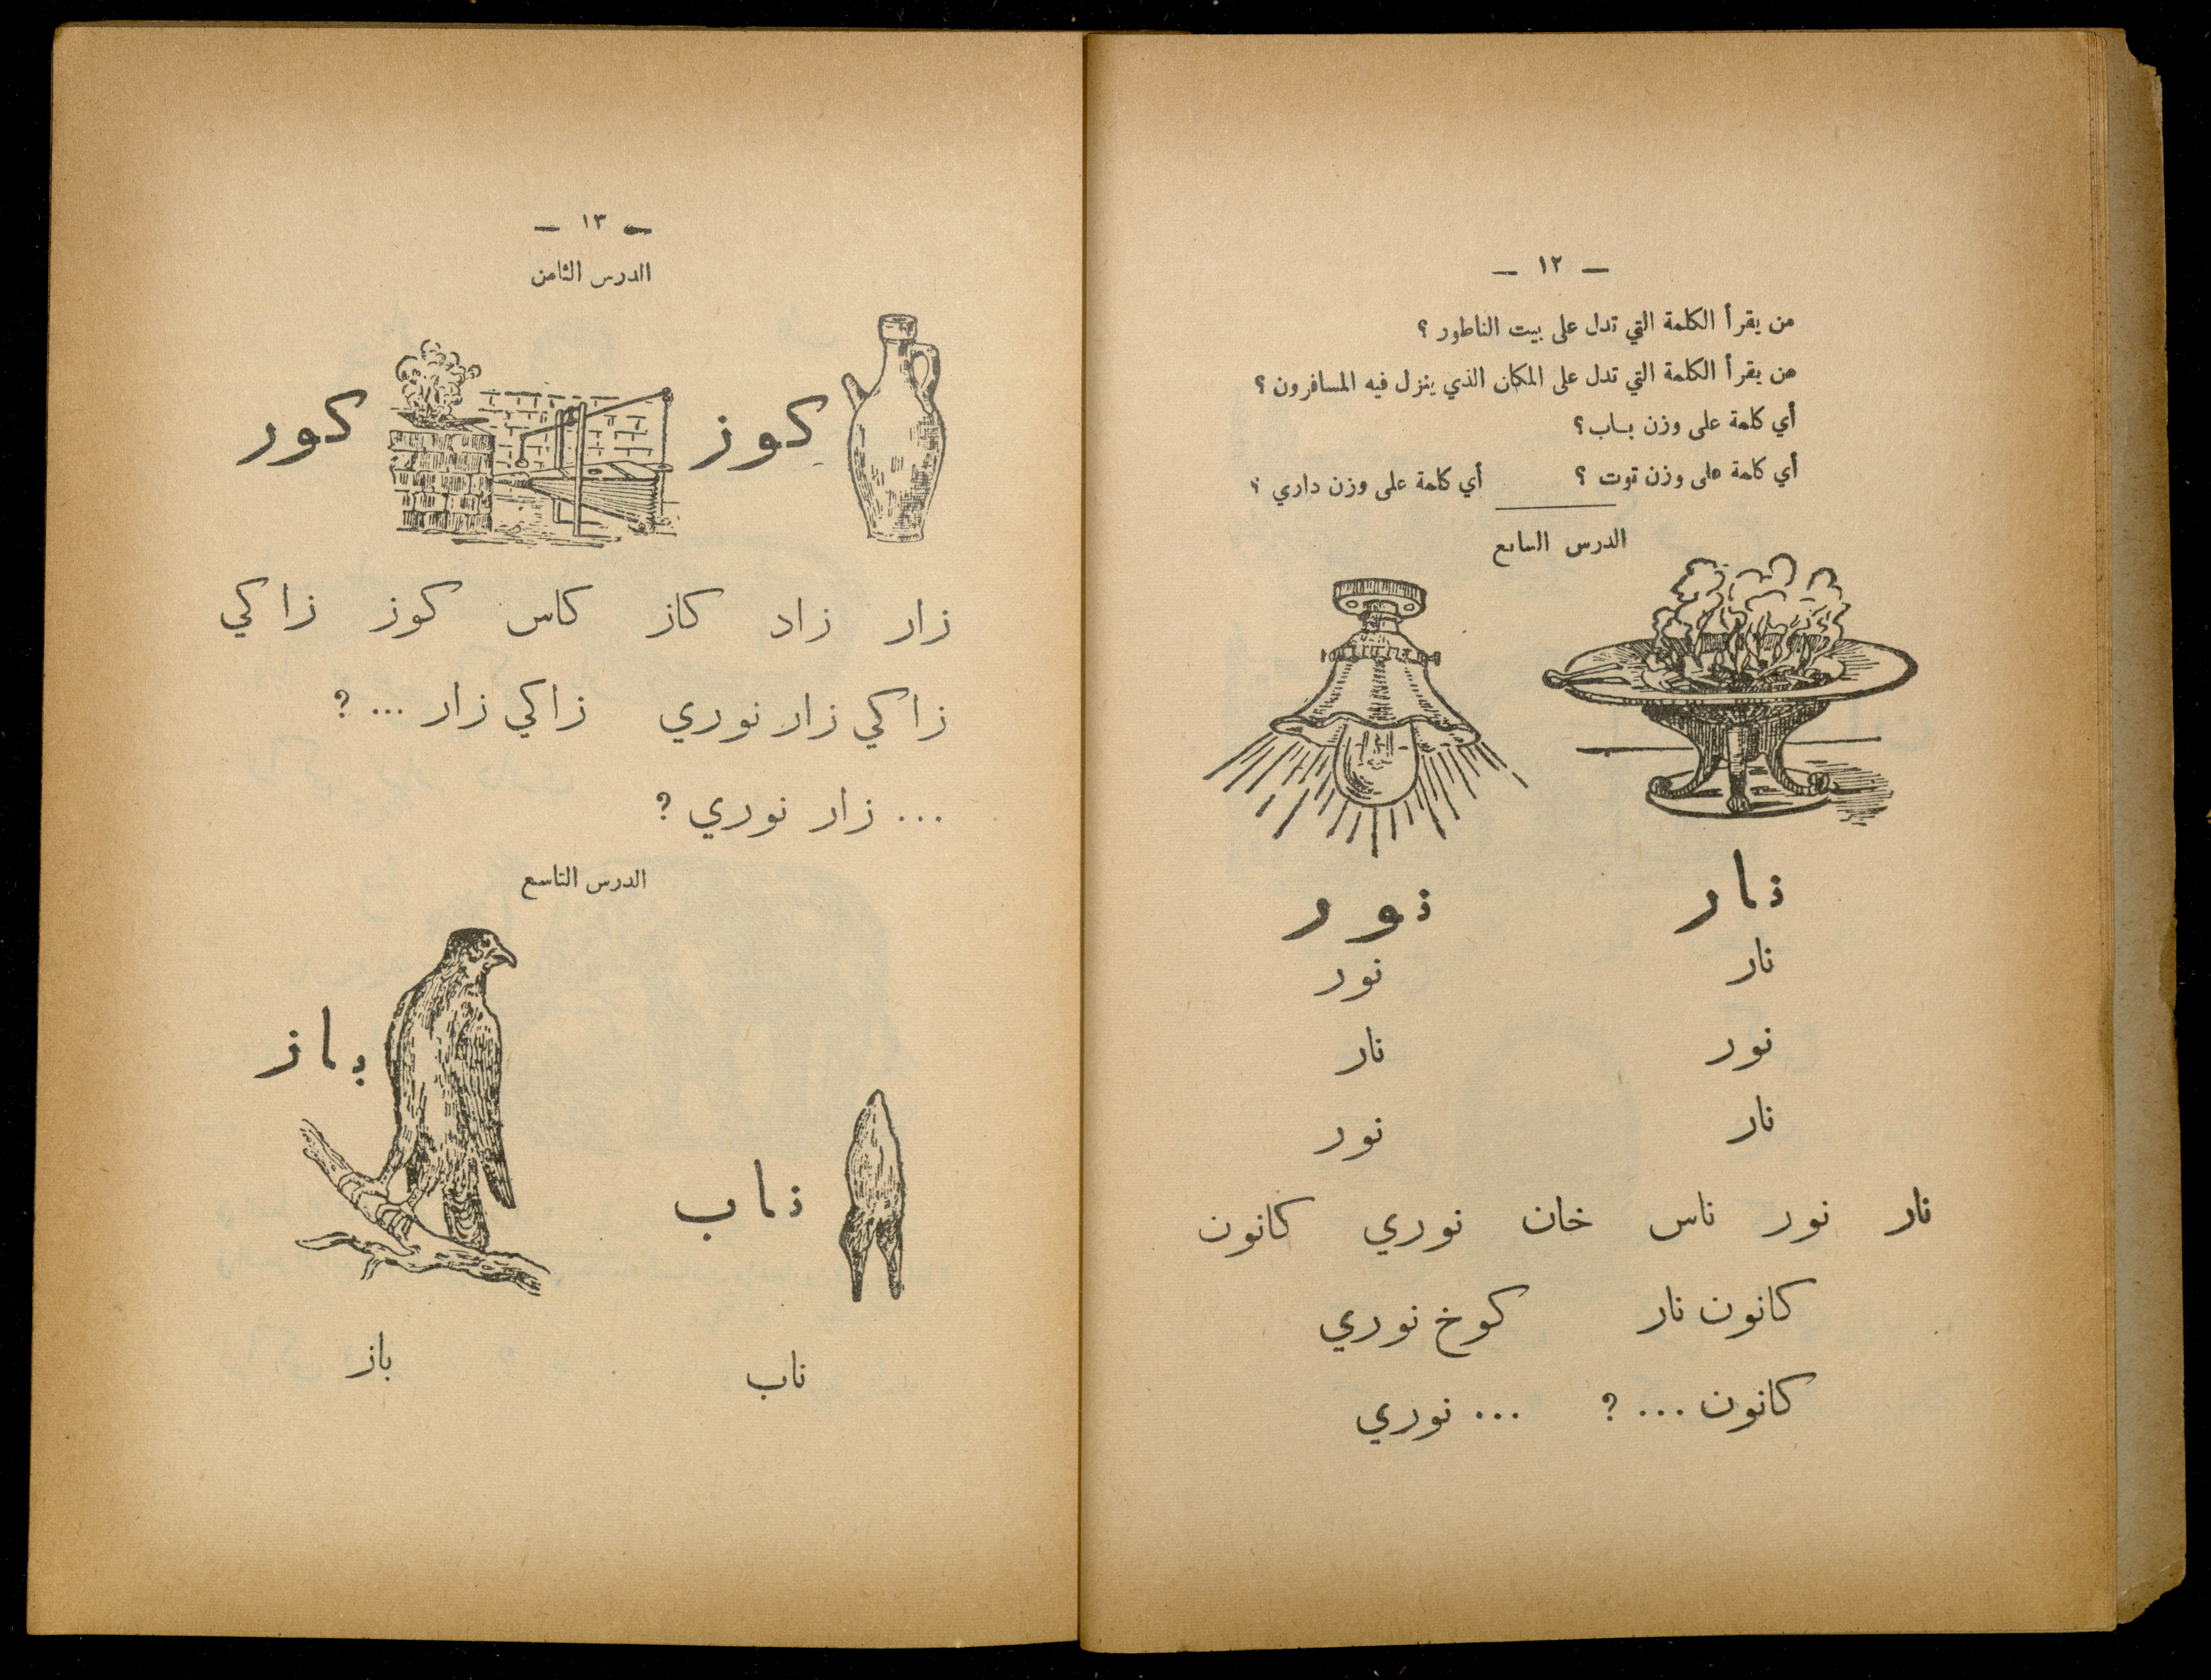 — ١٢ —
من يقرأ الكلمة التي تدل على بيت الناطور ؟
من يقرأ الكلمة التي تدل على المكان الذي ينزل فيه المسافرون ؟
أي كلمة على وزن باب ؟
أي كلمة على وزن توت ؟ أي كلمة على وزن داري ؟
الدرس السابع
نار نور
نار نور
نور نار
نار نور
نار نور ناس خان نوري كانون
كانون نار كوخ نوري
كانون ... ? ... نوري
— ١٣ —
الدرس الثامن
كوز كور
زار زاد كاز كاس كوز زاكي
زاكي زار نوري زاكي زار ... ?
... زار نوري ?
الدرس التاسع
باز
ناب
ناب باز